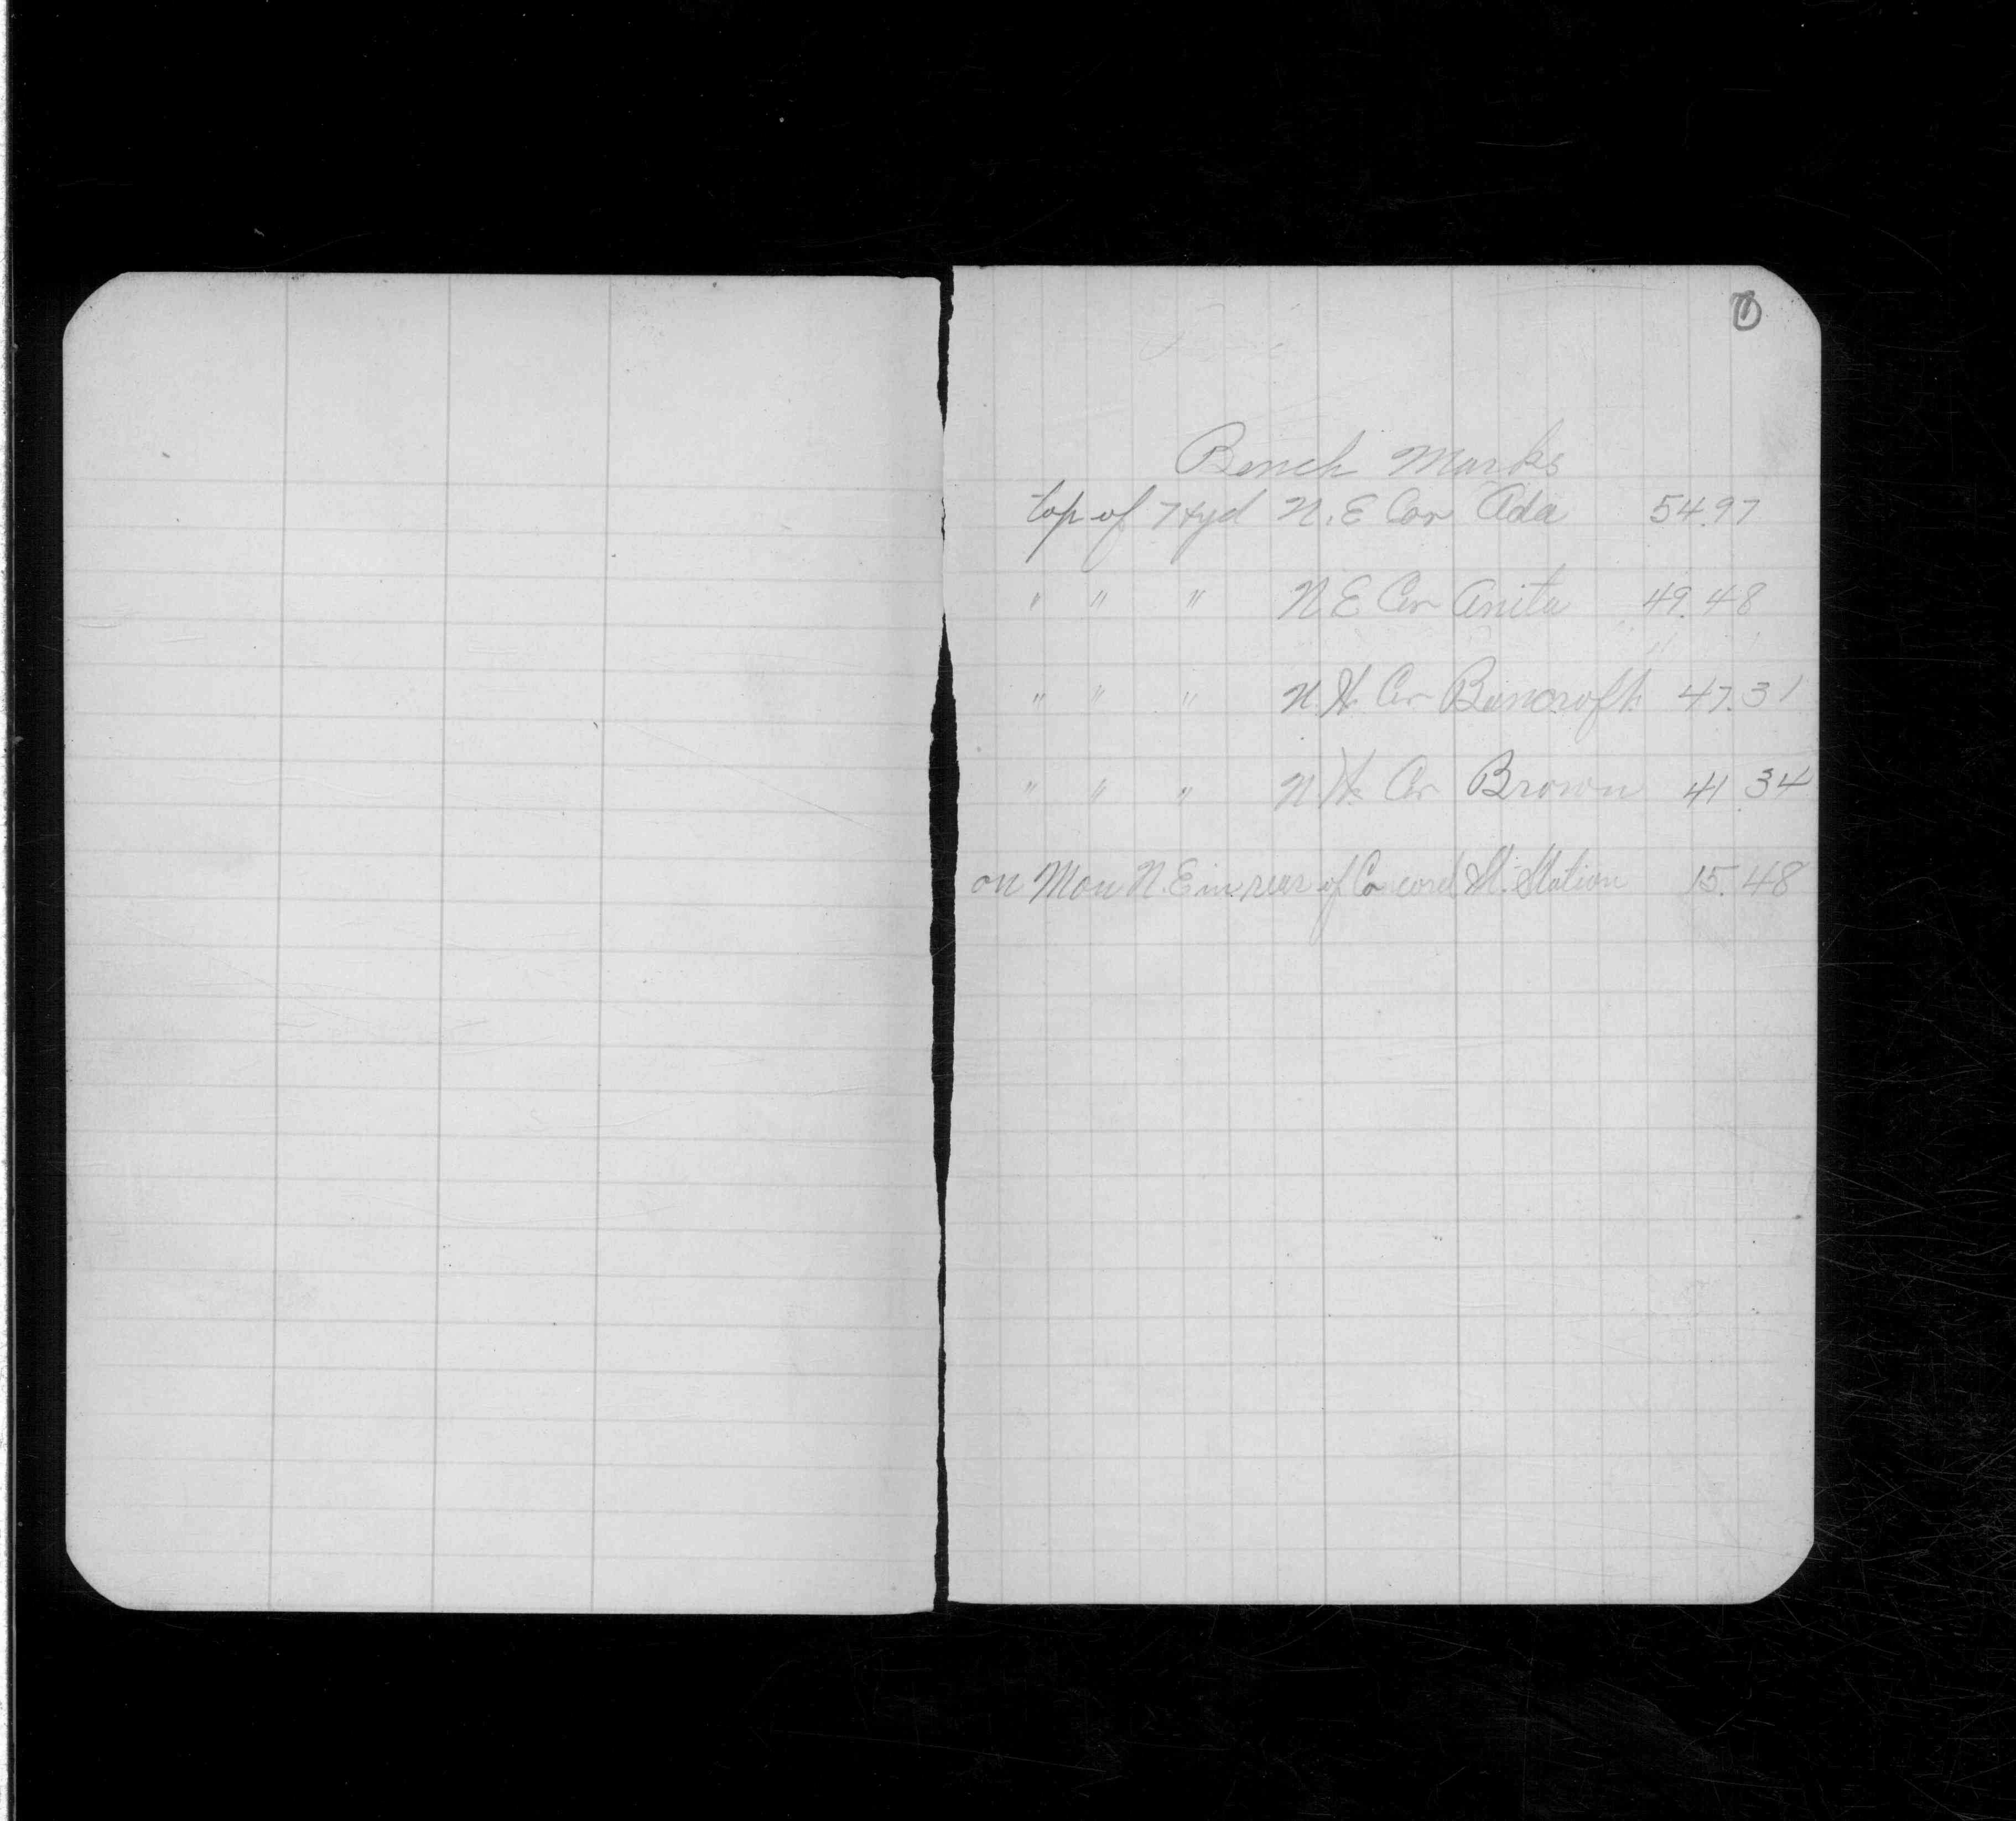 1
Bench Marks
top of Hyd N.E Cor Ada 54.97
" " " N E Cor Anita 49.48
" " " N.W. Cor Bancroft 47.31
" " " N.W. Cor Brown 41.34
on Mon N.E in rear of Co cord St. Station 15.48